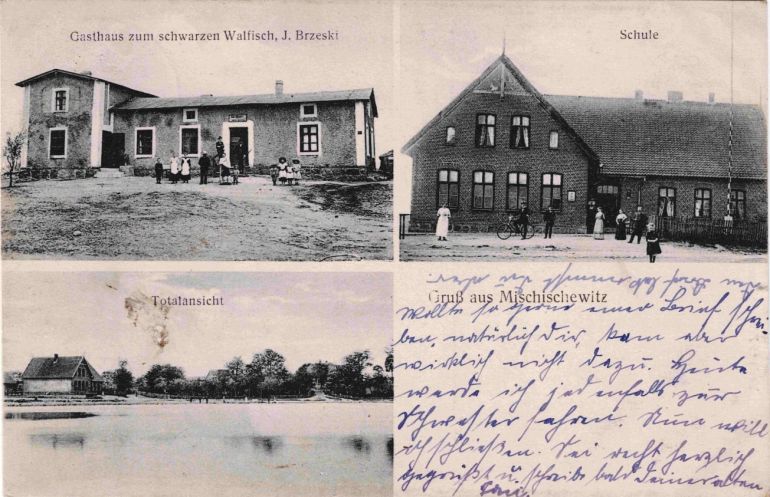 Gasthaus zum schwarzen Walfisch, J. Brzeski
Schule
Totalansicht
Gruß aus Mischischewitz
Wollte so gerne einen Brief schrei-
ben, natürlich Dir, kam aber
wirklich nicht dazu. Heute
werde ich jedenfalls zur
Schwester fahren. Nun will
ich schließen. Sei recht herzlich
gegrüßt u. schreibe bald Deiner alten